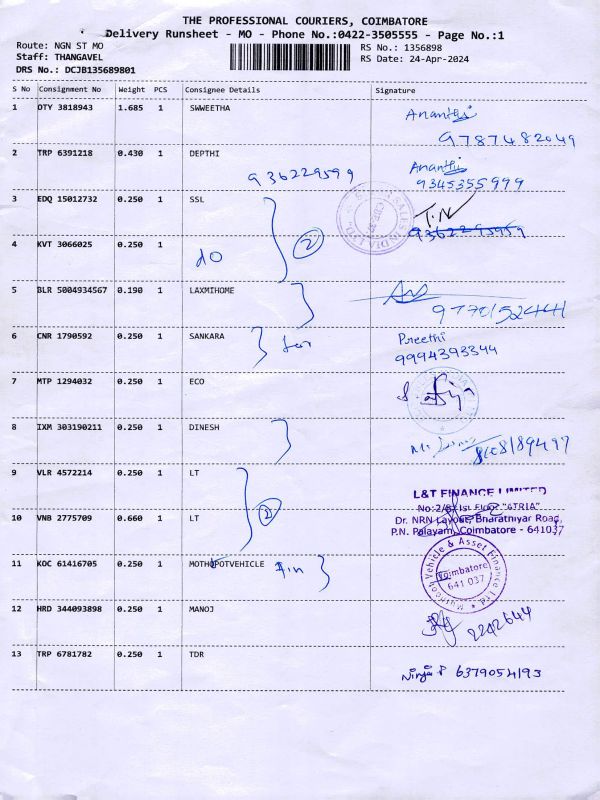 THE PROFESSIONAL COURIERS, COIMBATORE
Delivery Runsheet - MO - Phone No.:0422-3505555 - Page No.:1
Route: NGN ST MO
Staff: THANGAVEL
DRS No.: DCJB135689801
RS No.: 1356898
RS Date: 24-Apr-2024
S No Consignment No Weight PCS Consignee Details Signature
1 DTY 3818943 1.685 1 SWWEETHA Ananthi
9787482049
2 TRP 6391218 0.430 1 DEPTHI Ananthi
936229599 9345355999
3 EDQ 15012732 0.250 1 SSL T.N
4 KVT 3066025 0.250 1
do 2
5 BLR 5004934567 0.190 1 LAXMIHOME
6 CNR 1790592 0.250 1 SANKARA Preethi
9994393344
7 MTP 1294032 0.250 1 ECO
8 IXM 303190211 0.250 1 DINESH
9 VLR 4572214 0.250 1 LT
L&T FINANCE LIMITED
10 VNB 2775709 0.660 1 LT 2
No:2/8, Ist Floor "ATRIA"
Dr. NRN Layout, Bharathiyar Road,
P.N. Palayam, Coimbatore - 641037
11 KOC 61416705 0.250 1 MOTHOPOTVEHICLE Fin
Muthoot Vehicle & Asset Finance Ltd.
Coimbatore
641 037
12 HRD 344093898 0.250 1 MANOJ 2242644
13 TRP 6781782 0.250 1 TDR
6379054193